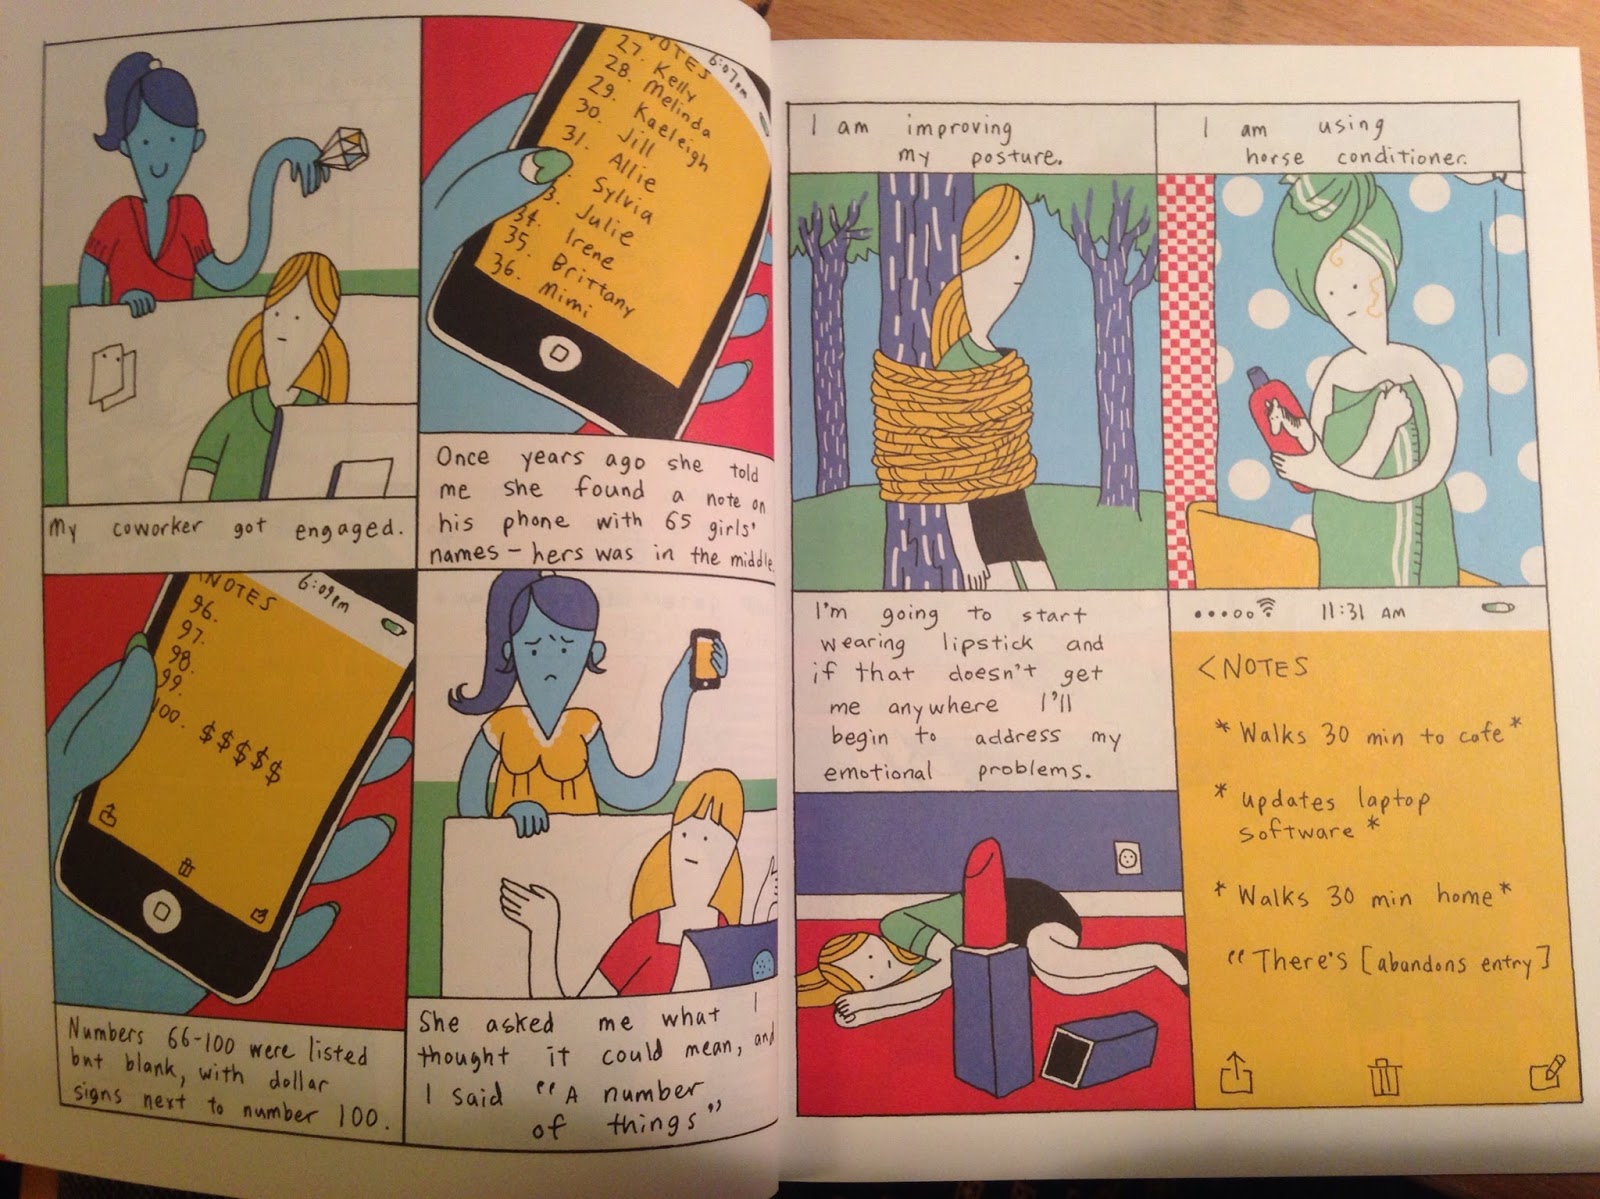 My coworker got engaged.
NOTES 6:07pm
27. Kelly
28. Melinda
29. Kaeleigh
30. Jill
31. Allie
Sylvia
3. Julie
34. Irene
35. Brittany
36. Mimi
Once years ago she told
me she found a note on
his phone with 65 girls'
names – hers was in the middle.
<NOTES 6:09pm
96.
97.
98.
99.
100. $$$$$
Numbers 66-100 were listed
but blank, with dollar
signs next to number 100.
She asked me what I
thought it could mean, and
I said "A number
of things"
I am improving
my posture.
I am using
horse conditioner.
I'm going to start
wearing lipstick and
if that doesn't get
me anywhere I'll
begin to address my
emotional problems.
11:31 AM
<NOTES
*Walks 30 min to cafe*
*updates laptop
software*
*Walks 30 min home*
"There's [abandons entry]